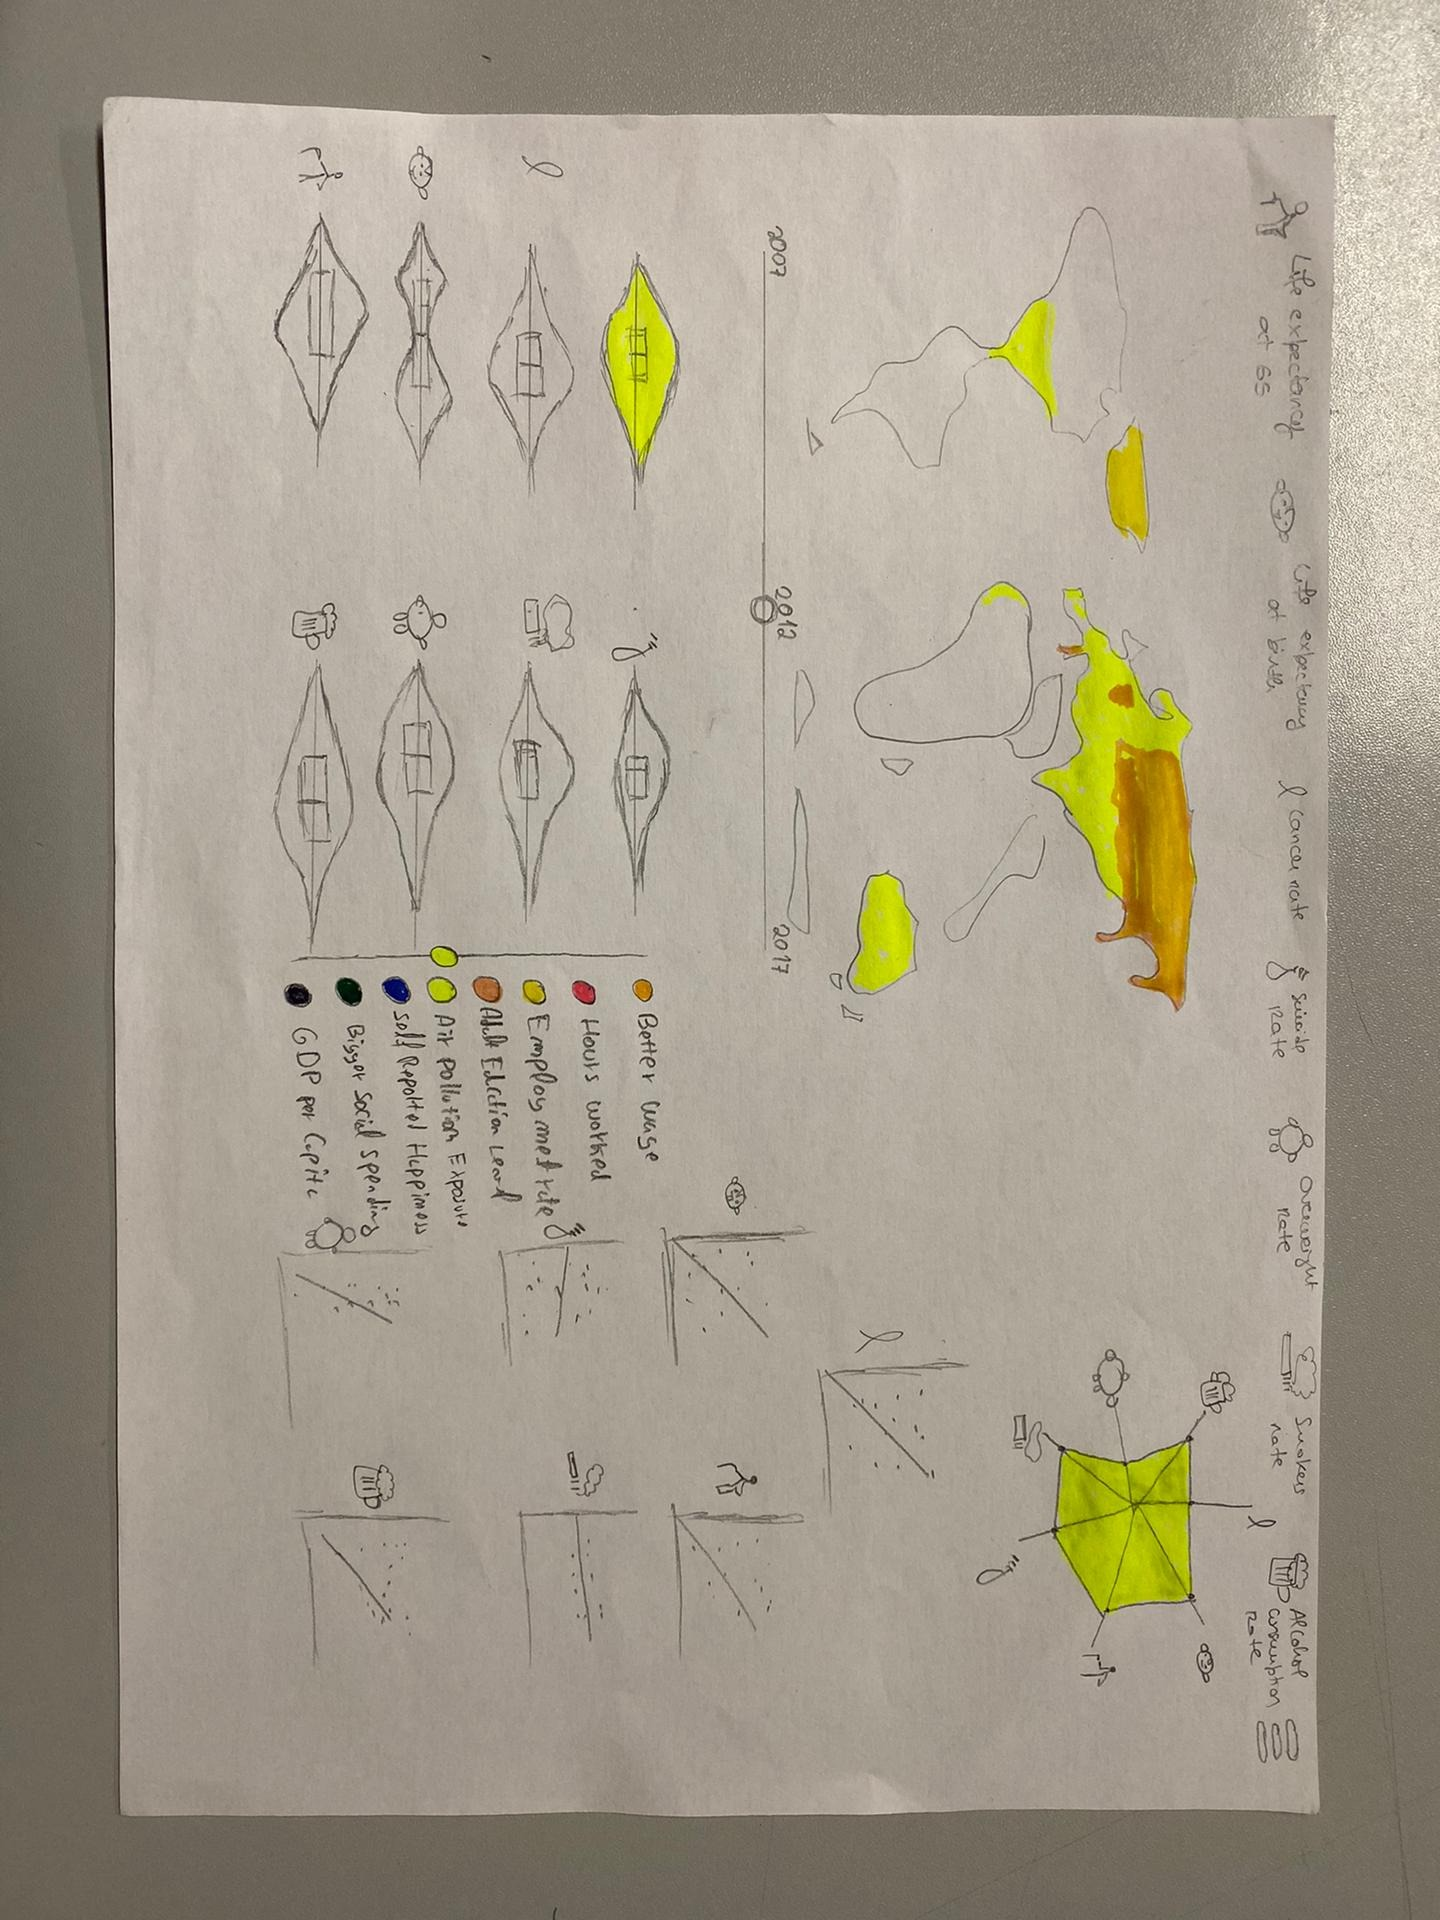 Life expectancy
at 65
Life expectancy
at birth
Cancer rate
Suicide
Rate
Overweight
rate
Smokers
rate
Alcohol
consumption
Rate
2007
2012
2017
Better wage
Hours worked
Employment rate
Adult Edction Level
Air pollution Exposure
Self Reported Happiness
Bigger Social Spending
GDP per Capita